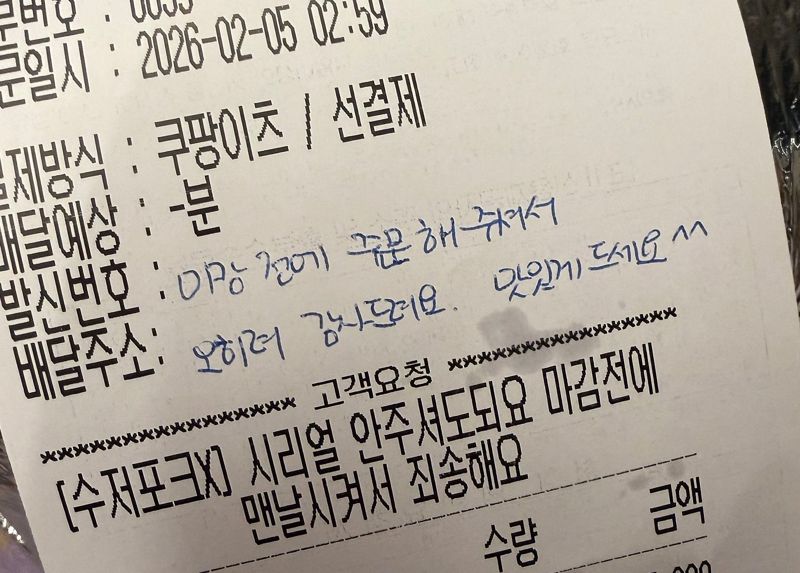 문번호 : 0033
문일시 : 2026-02-05 02:59
제방식 : 쿠팡이츠 / 선결제
배달예상 : -분
발신번호 :
마감 전에 주문해 주셔서
배달주소:
오히려 감사드려요. 맛있게 드세요^^
**************** 고객요청 ****************
[수저포크X] 시리얼 안주셔도되요 마감전에
맨날시켜서 죄송해요
수량 금액